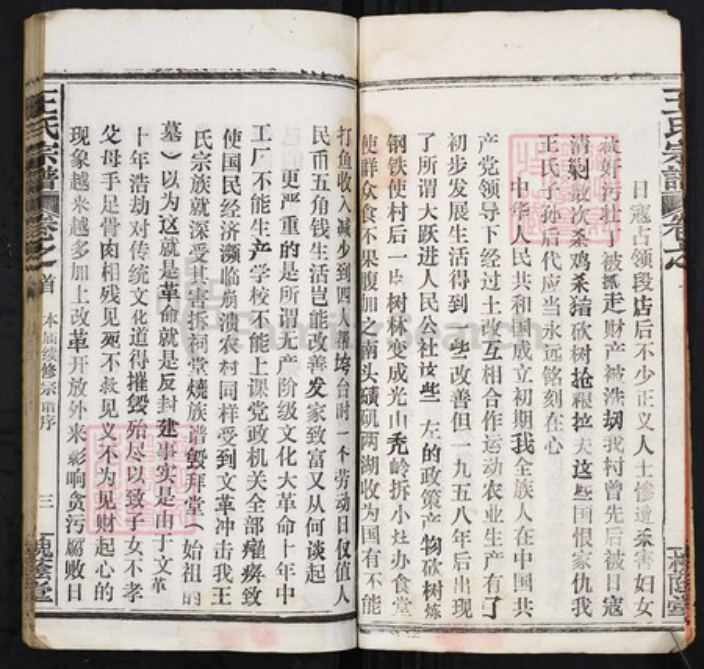 王氏宗譜
卷之
日寇占领段店后不少正义人士惨遭杀害妇女
被奸污壮丁被抓走财产被洗刼我村曾先后被日寇
清剿数次杀鸡杀猪砍树抢粮拉夫这些国恨家仇我
王氏子孙后代应当永远铭刻在心
中华人民共和国成立初期我全族人在中国共
产党领导下经过土改互相合作运动农业生产有了
初步发展生活得到一些改善但一九五八年后出现
了所谓大跃进人民公社这些左的政策产物砍树炼
钢铁使村后一片树林变成光山秃岭拆小灶办食堂
使群众食不果腹加之南头矶两湖收为国有不能
打鱼收入减少到四人帮垮台时一个劳动日仅值人
民币五角钱生活岂能改善发家致富又从何谈起
更严重的是所谓无产阶级文化大革命十年中
工厂不能生产学校不能上课党政机关全部瘫痪致
使国民经济濒临崩溃农村同样受到文革冲击我王
氏宗族就深受其害拆祠堂燒族谱毁拜堂（始祖的
墓）以为这就是革命就是反封建事实是由于文革
十年浩劫对传统文化道得摧毁殆尽以致子女不孝
父母手足骨肉相残见死不救见义不为见财起心的
现象越来越多加上改革开放外来影响贪污腐败日
王氏宗譜
卷之首
本届续修宗谱序
三
槐陰堂